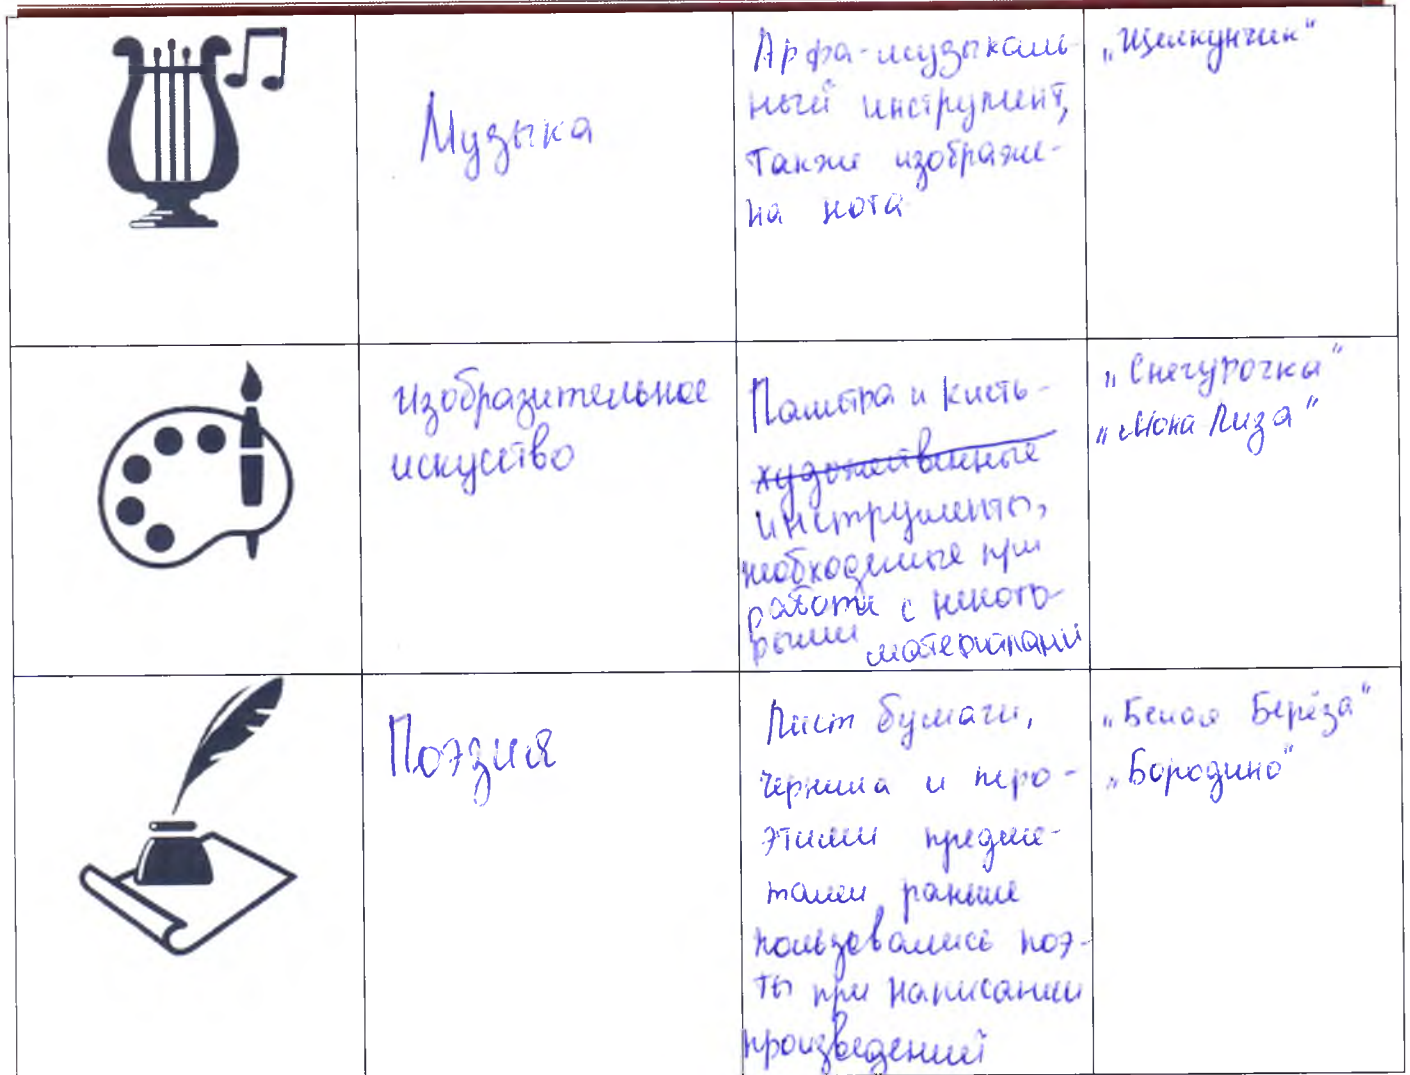 Музыка
Арфа-музыкаль-
ный инструмент,
также изображе-
на нота
„Щелкунчик“
Изобразительное
искусство
Палитра и кисть-
художественные
инструменты,
необходимые при
работе с некото-
рыми материалами
„Снегурочка“
„Мона Лиза“
Поэзия
Лист бумаги,
чернила и перо-
этими предме-
тами раньше
пользовались поэ-
ты при написании
произведений
„Белая Берёза“
„Бородино“